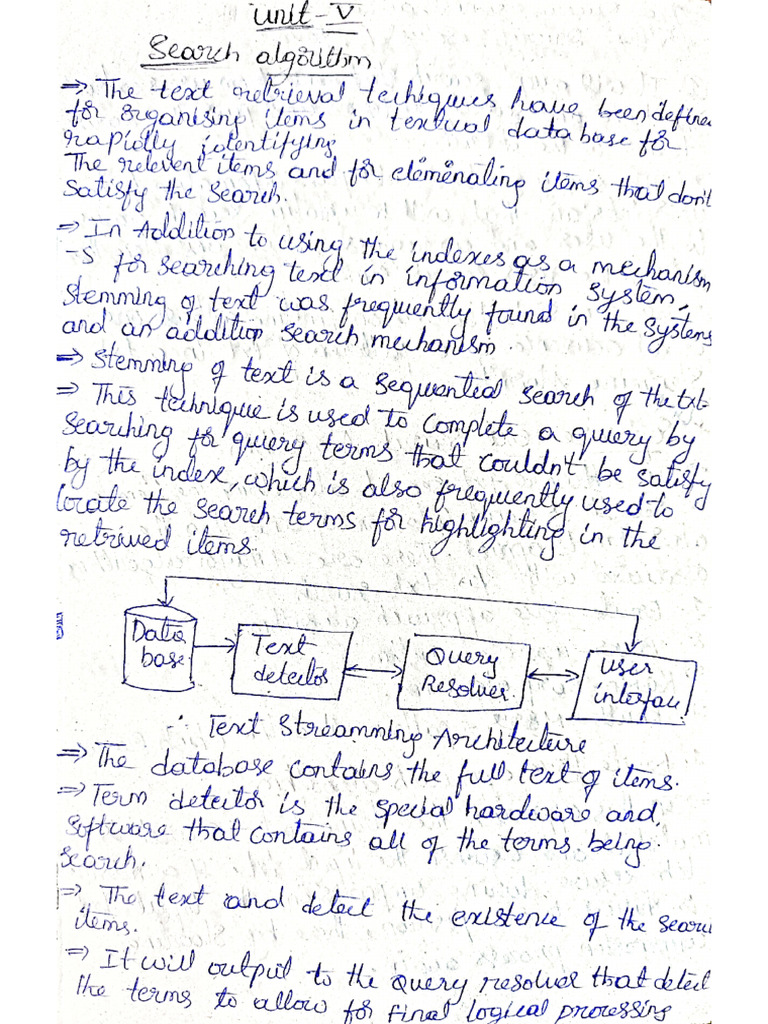 Unit - V
Search algorithm
⇒ The text retrieval techiques have been define
for organising items in textual data base for
rapidly identifying
The relevent items and for elemenating items that don't
satisfy the search.
⇒ In Addition to using the indexes as a mechanism
-s for searching text in information system,
stemming of text was frequently found in the systems
and an addition search mechanism.
⇒ Stemming of text is a sequential search of the txt
⇒ This technique is used to complete a query by
searching for quiery terms that couldn't be satisfy
by the index, which is also frequently used to
locate the search terms for highlighting in the
retrived items.
Data base
Text detectos
Query Resolver
User interface
∴ Text Streamming Architecture
⇒ The database contains the full text of items.
⇒ Term detector is the special hardware and,
software that contains all of the terms being
search.
⇒ The text and detect the existence of the search
items.
⇒ It will output to the query resolver that detect
the terms to allow for final logical processing